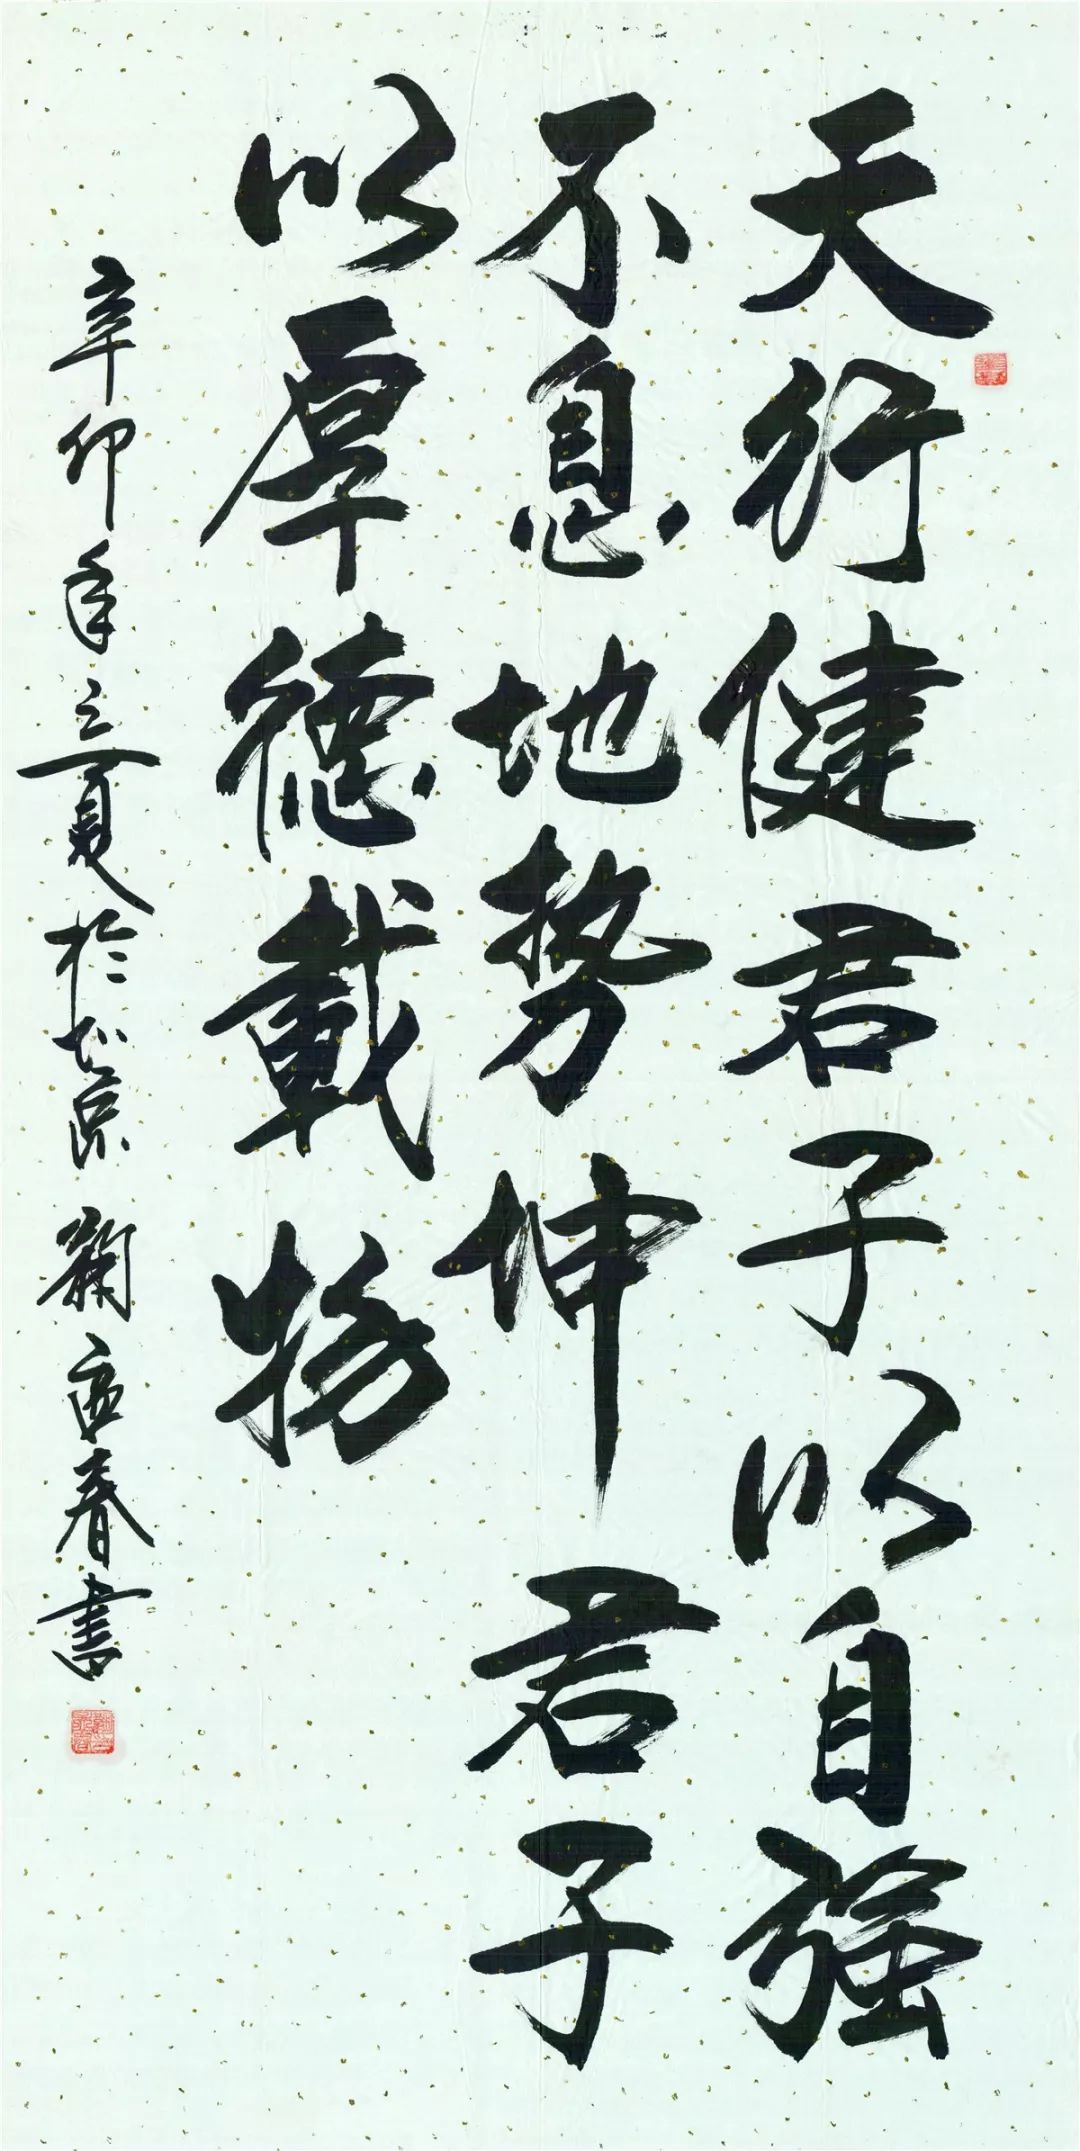 天行健君子以自強
不息地势坤君子
以厚德載物
辛卯年立夏於北京 春書